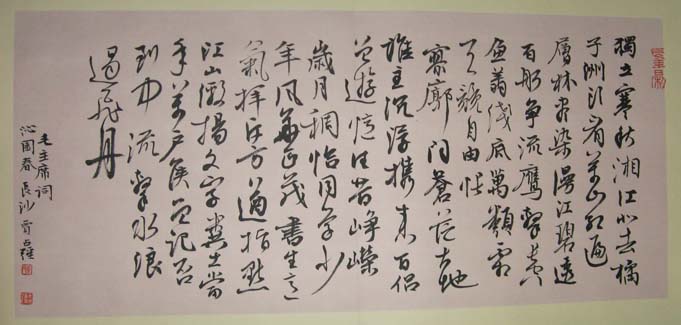 獨立寒秋湘江北去橘
子洲頭看萬山紅遍
層林盡染漫江碧透
百舸争流鷹擊長空
魚翔淺底萬類霜
天競自由悵
寥廓問蒼茫大地
誰主沉浮攜來百侶
曾遊憶往昔崢嶸
歲月稠恰同學少
年風華正茂書生意
氣揮斥方遒指點
江山激揚文字糞土當
年萬户侯曾記否
到中流擊水浪
遏飛舟
毛主席词
沁園春長沙